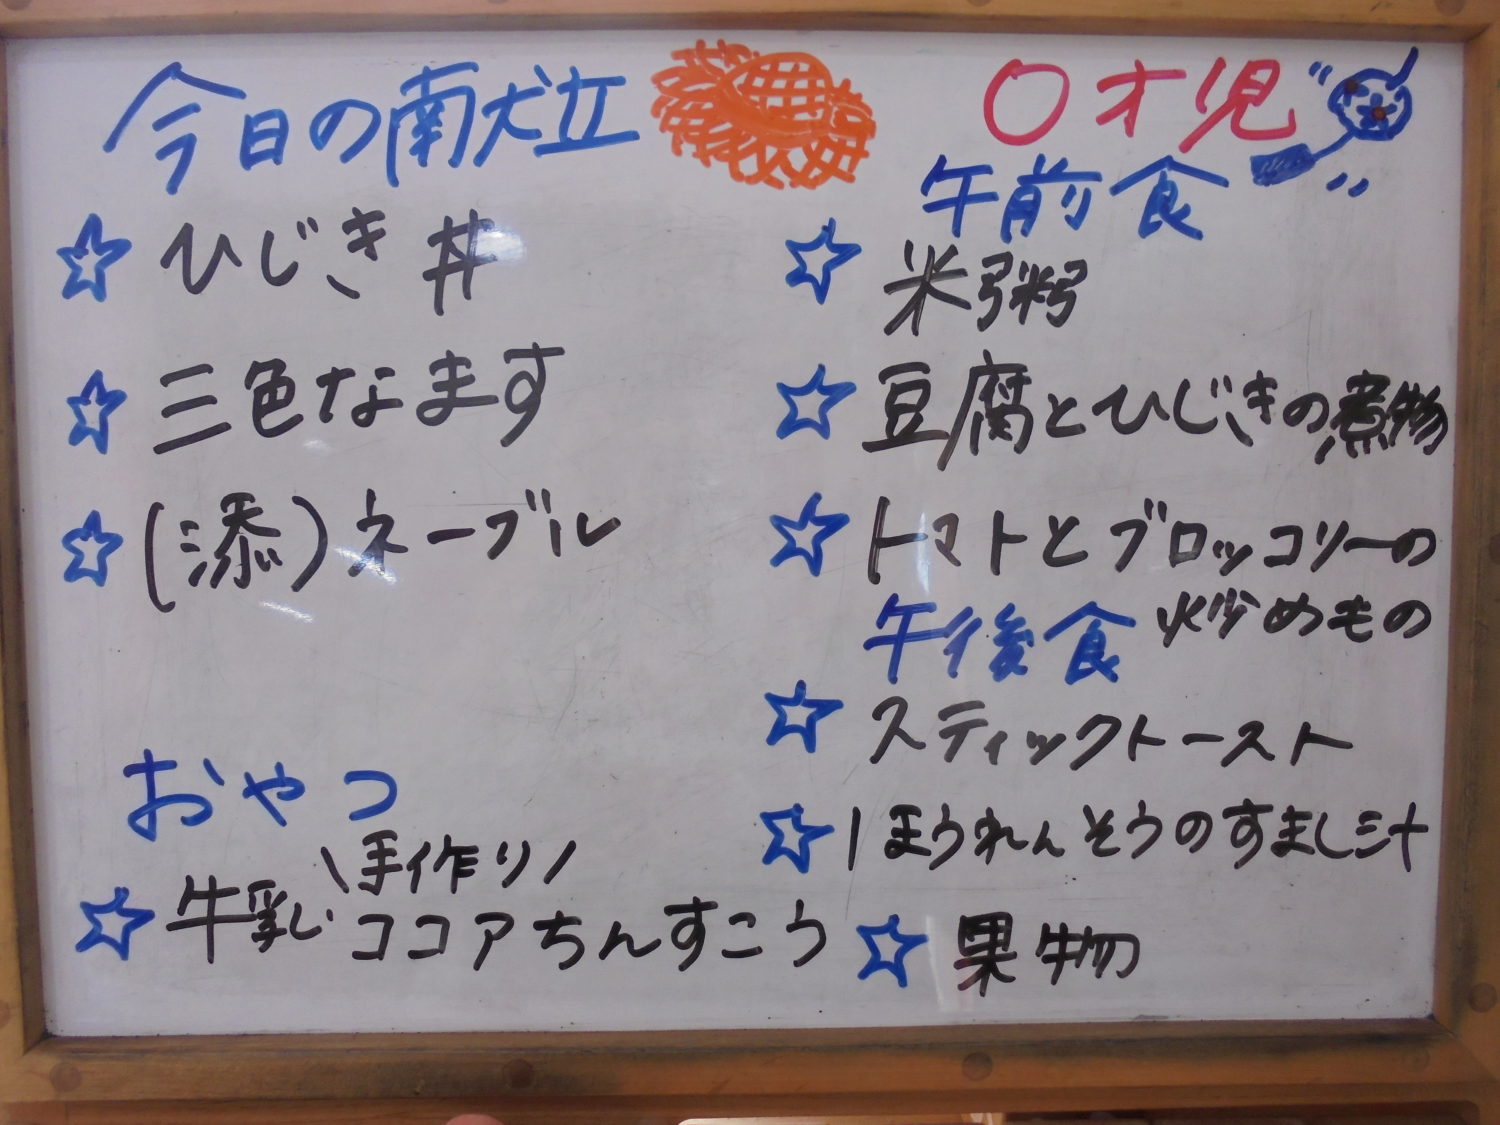 今日の献立
☆ ひじき丼
☆ 三色なます
☆ (添)ネーブル
おやつ
\手作り/
☆ 牛乳 ココアちんすこう
〇才児
午前食
☆ 米粥
☆ 豆腐とひじきの煮物
☆ トマトとブロッコリーの
炒めもの
午後食
☆ スティックトースト
☆ ほうれんそうのすまし汁
☆ 果物